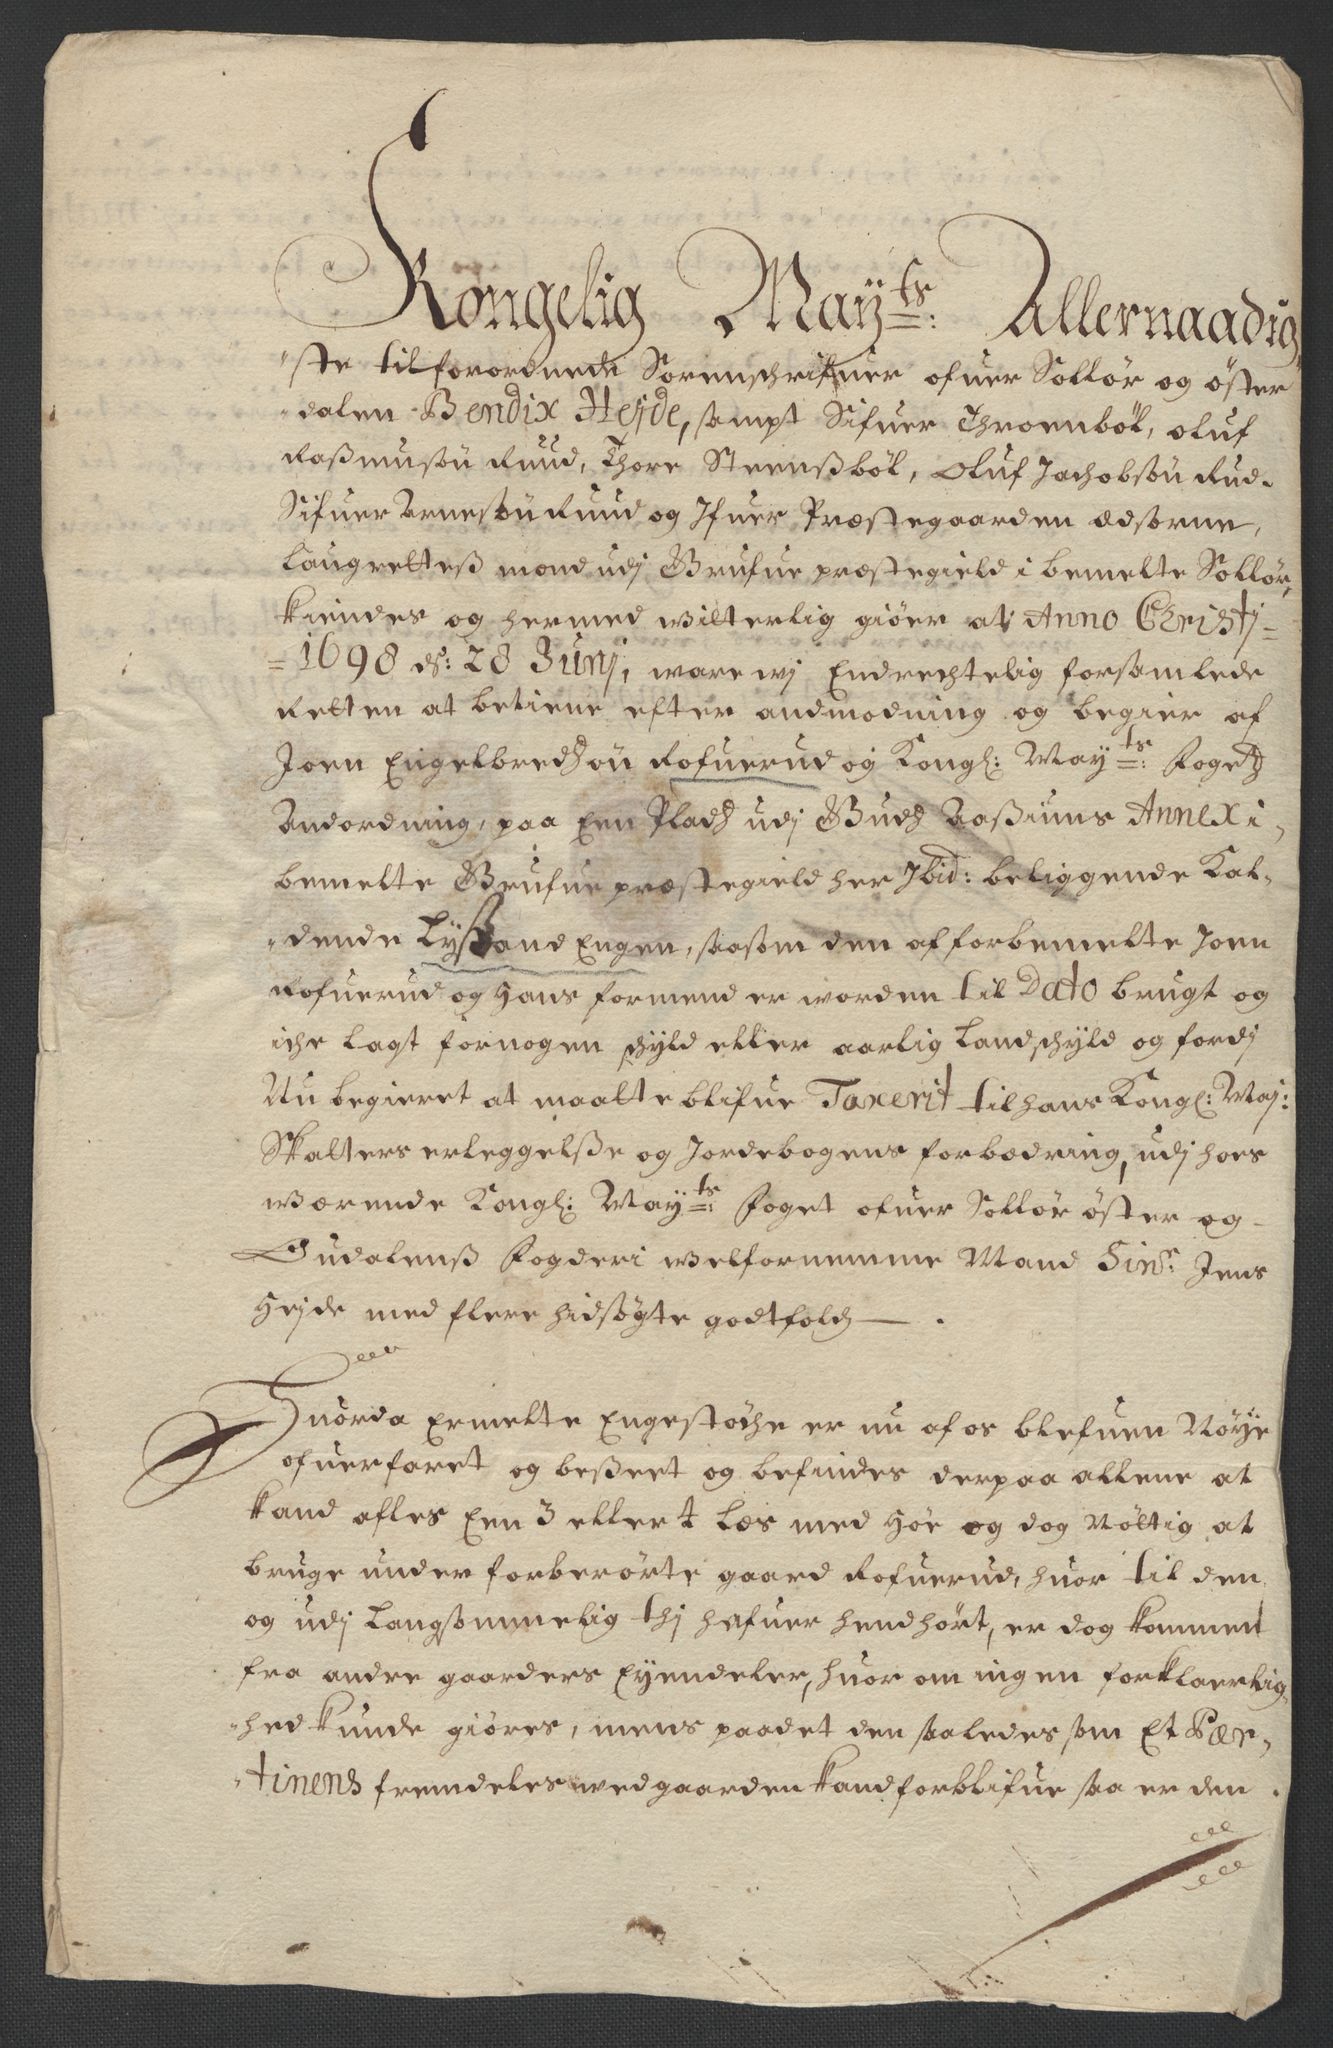 Kongelig Maÿ:ts Allernaadig„
„ste tilforordnede Sorenschrifuer ofuer Sollør og Øster
„dalen Bendix Hejde, sampt Sifuer Throenbøl, Oluf
Raßmusøn Ruud, Thore Steenßbøl, Oluf Jachobsøn Rud,
Sifuer Arnesøn Ruud og Ifuer Præstegaarden Edsorne,
Laugretteß mend udj Grufue præstegield i bemelte Sollør,
kiendes og hermed witterlig giøer at Anno Christj
1698 d: 28 Junj, ware wj Endrechtelig forsamlede
Retten at betiene efter andmodning og begier af
Joen Engelbredsøn Rofuerud og Kongl: May:ts Fogeds
Andordning, paa Een Plads udj Guds Aaßiums Annex i
bemelte Grufue præstegield her Ibid: beliggende Kal„
„dende Lystand Engen, saasom den af forbemelte Joen
Rofuerud og Hans formend er worden til Dato brugt og
iche lagt for nogen schyld eller aarlig Landschyld og fordj
Nu begieret at maatte blifue Taxerit til hans Kongl: Maj:
Skatters erleggelße og Jordebogens forbædring, udj hoes
wærende Kongl: May:ts Foget ofuer Sollør Øster og
Gudalenß Fogderi welfornemme Mand Sinr: Jens
Hejde med flere hidsøgte godtfolch .
Huorda Ermelte Engestøche er nu af os blefuen Nøÿe
ofuerfaret og beßeet og befindes derpaa allene at
kand afles Een 3 eller 4 Læs med Høe og dog Nøttig at
bruge under forberørte gaard Rofuerud, huor til den
og udj Langsommelig thj hafuer hendhørt, er dog kommen
fra andre gaarders Eyendeler, huor om ingen forklaerlig„
„hed kunde giøres, mens paadet den saaledes som Et Pær„
„tinens fremdeles wed gaarden kand forblifue saa er den